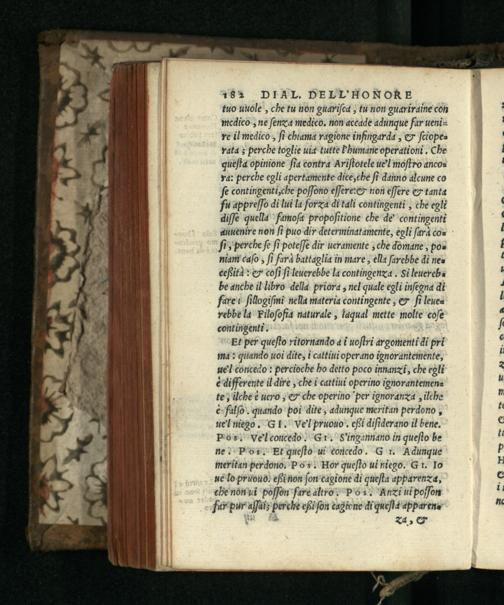 182 DIAL. DELL'HONORE
tuo uuole, che tu non guarisca, tu non guariraine con
medico, ne senza medico. non accade adunque far ueni-
re il medico, si chiama ragione infingarda, & sciope-
rata; perche toglie uia tutte l'humane operationi. Che
questa opinione sia contra Aristotele ue'l mostro anco-
ra: perche egli apertamente dice, che si danno alcune co
se contingenti, che possono essere: & non essere & tanta
fu appresso di lui la forza di tali contingenti, che egli
disse quella famosa propositione che de' contingenti
auuenire non si puo dir determinatamente, egli sarà co-
si, perche se si potesse dir ueramente, che domane, po-
niam caso, si farà battaglia in mare, ella sarebbe di ne-
cessità: & cosi si leuerebbe la contingenza. Si leuereb-
be anche il libro della priora, nel quale egli insegna di
fare i sillogismi nella materia contingente, & si leue-
rebbe la Filosofia naturale, laqual mette molte cose
contingenti.
Et per questo ritornando a i uostri argomenti di pri
ma: quando uoi dite, i cattiui operano ignorantemente,
ue'l concedo: percioche ho detto poco innanzi, che egli
è differente il dire, che i cattiui operino ignorantemen-
te, ilche è uero, & che operino per ignoranza, ilche
è falso. quando poi dite, adunque meritan perdono,
ue'l niego. GI. Ve'l pruouo. eßi disiderano il bene.
Pos. Ve'l concedo. GI. S'ingannano in questo be
ne. Pos. Et questo ui concedo. GI. Adunque
meritan perdono. Pos. Hor questo ui niego. GI. Io
ue lo pruouo. eßi non son cagione di questa apparenza,
che non ui posson fare altro. Pos. Anzi ui posson
far pur assai; perche eßi son cagione di questa apparen-
za, &